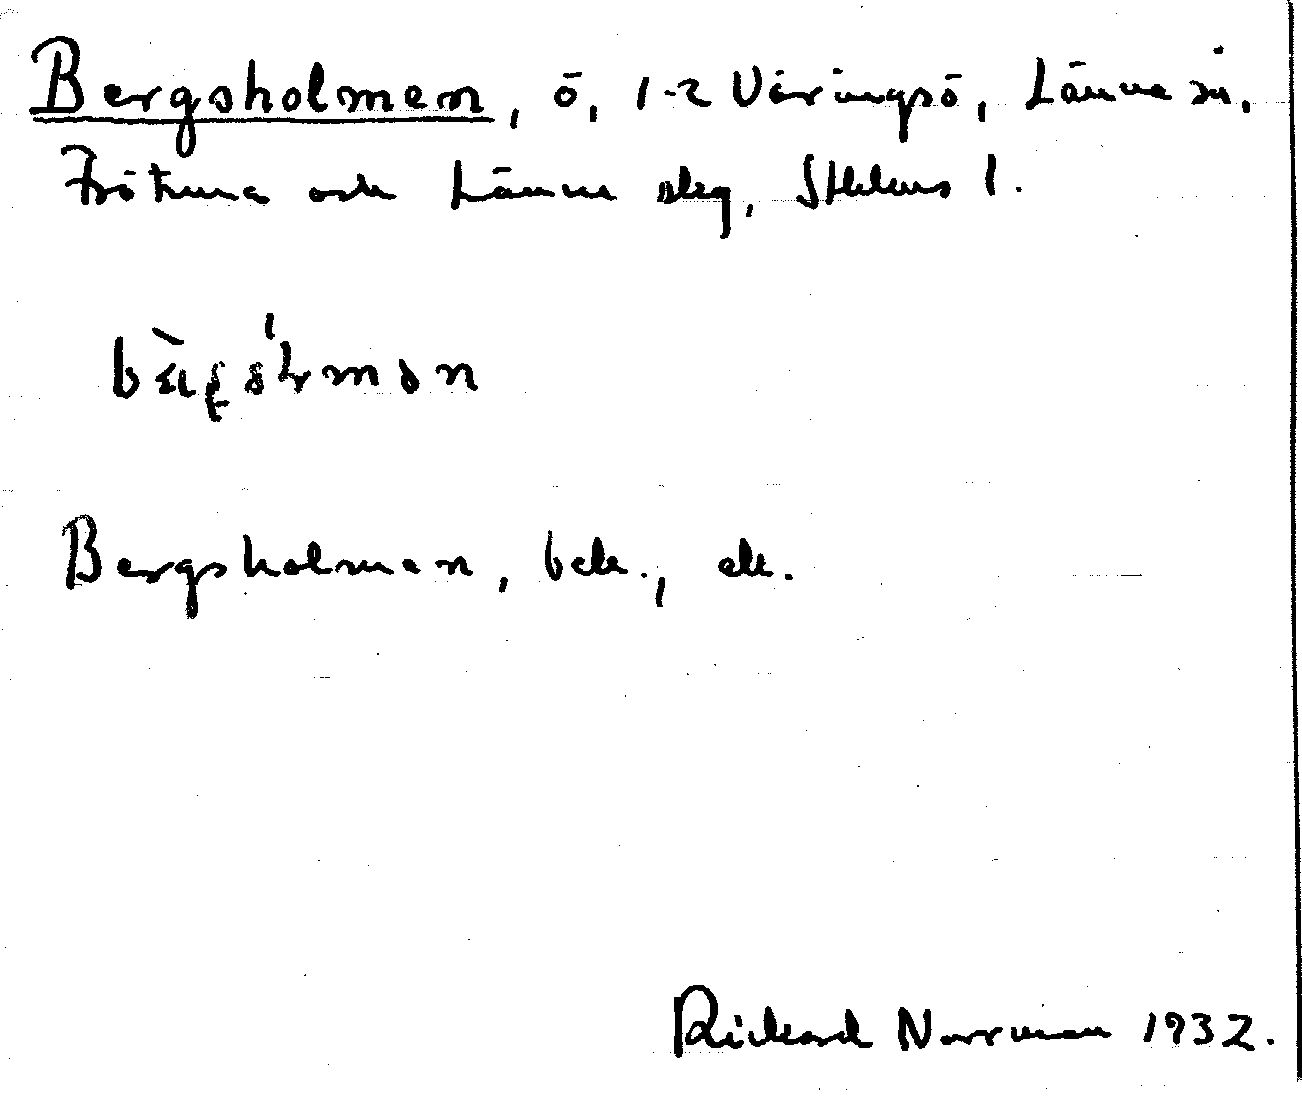 Bergsholmen, ö, 1-2 Väringsö, Länna sn.
Frötuna och Länna skg, Sthlms l.
Bergsholmen, bek., ek.
Rickard Norrman 1932.